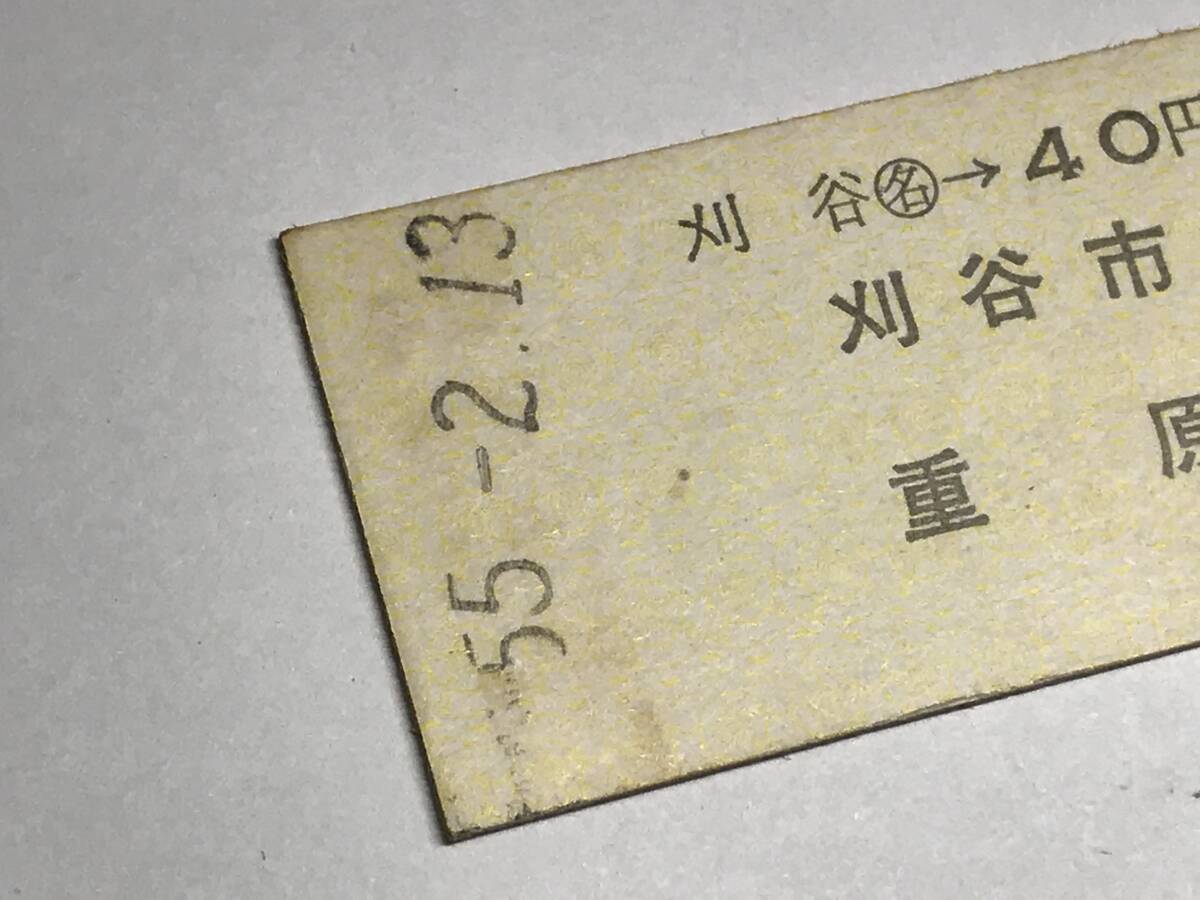 刈 谷㊔→40円
刈谷市
重原
55-2.13